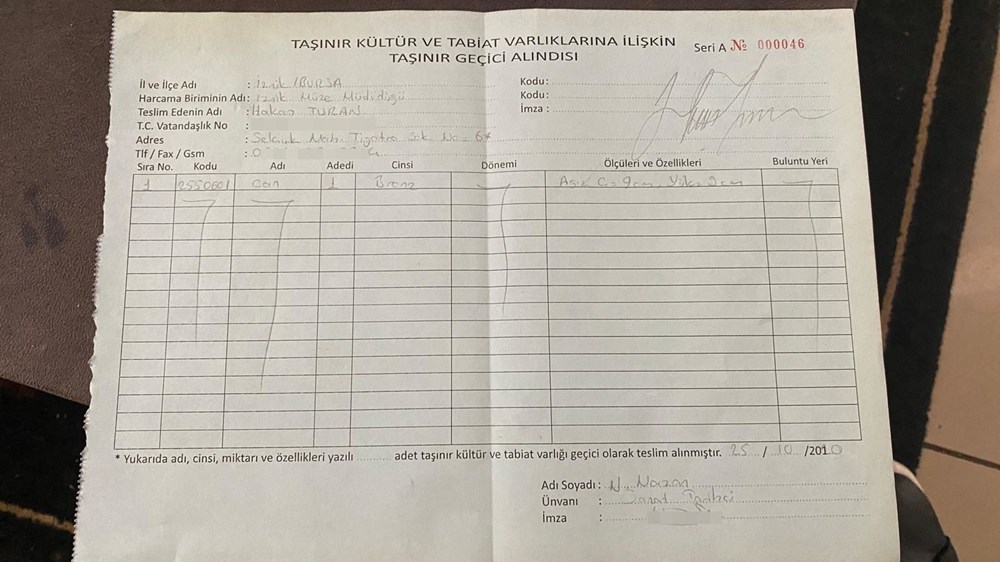 TAŞINIR KÜLTÜR VE TABİAT VARLIKLARINA İLİŞKİN
TAŞINIR GEÇİCİ ALINDISI
Seri A № 000046
İl ve İlçe Adı : İznik / BURSA
Harcama Biriminin Adı: İznik Müze Müdürlüğü
Teslim Edenin Adı : Hakan TURAN
T.C. Vatandaşlık No :
Adres : Selçuk Mah. Tiyatro Sok No = 6
Tlf / Fax / Gsm : 0
Kodu:
Kodu:
İmza :
Sıra No. Kodu Adı Adedi Cinsi Dönemi Ölçüleri ve Özellikleri Buluntu Yeri
1 2550601 Çan 1 Bronz Ağız Ç= 9cm, Yük. 9cm
* Yukarıda adı, cinsi, miktarı ve özellikleri yazılı .......... adet taşınır kültür ve tabiat varlığı geçici olarak teslim alınmıştır. 25 / 10 /2010
Adı Soyadı : N. Nazan
Ünvanı : Sanat Tarihçi
İmza :